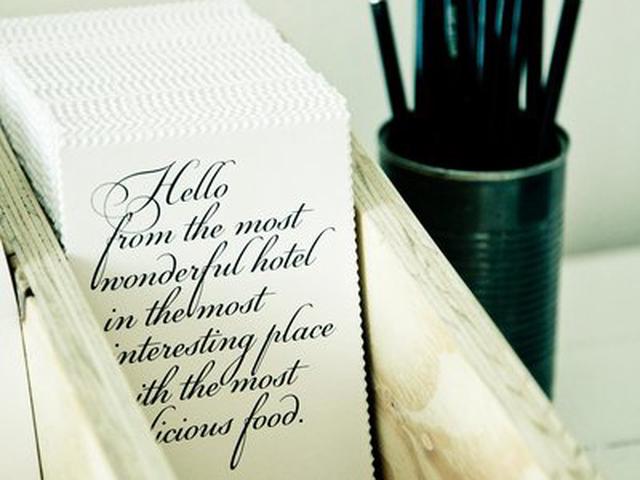 Hello
from the most
wonderful hotel
in the most
interesting place
ith the most
licious food.